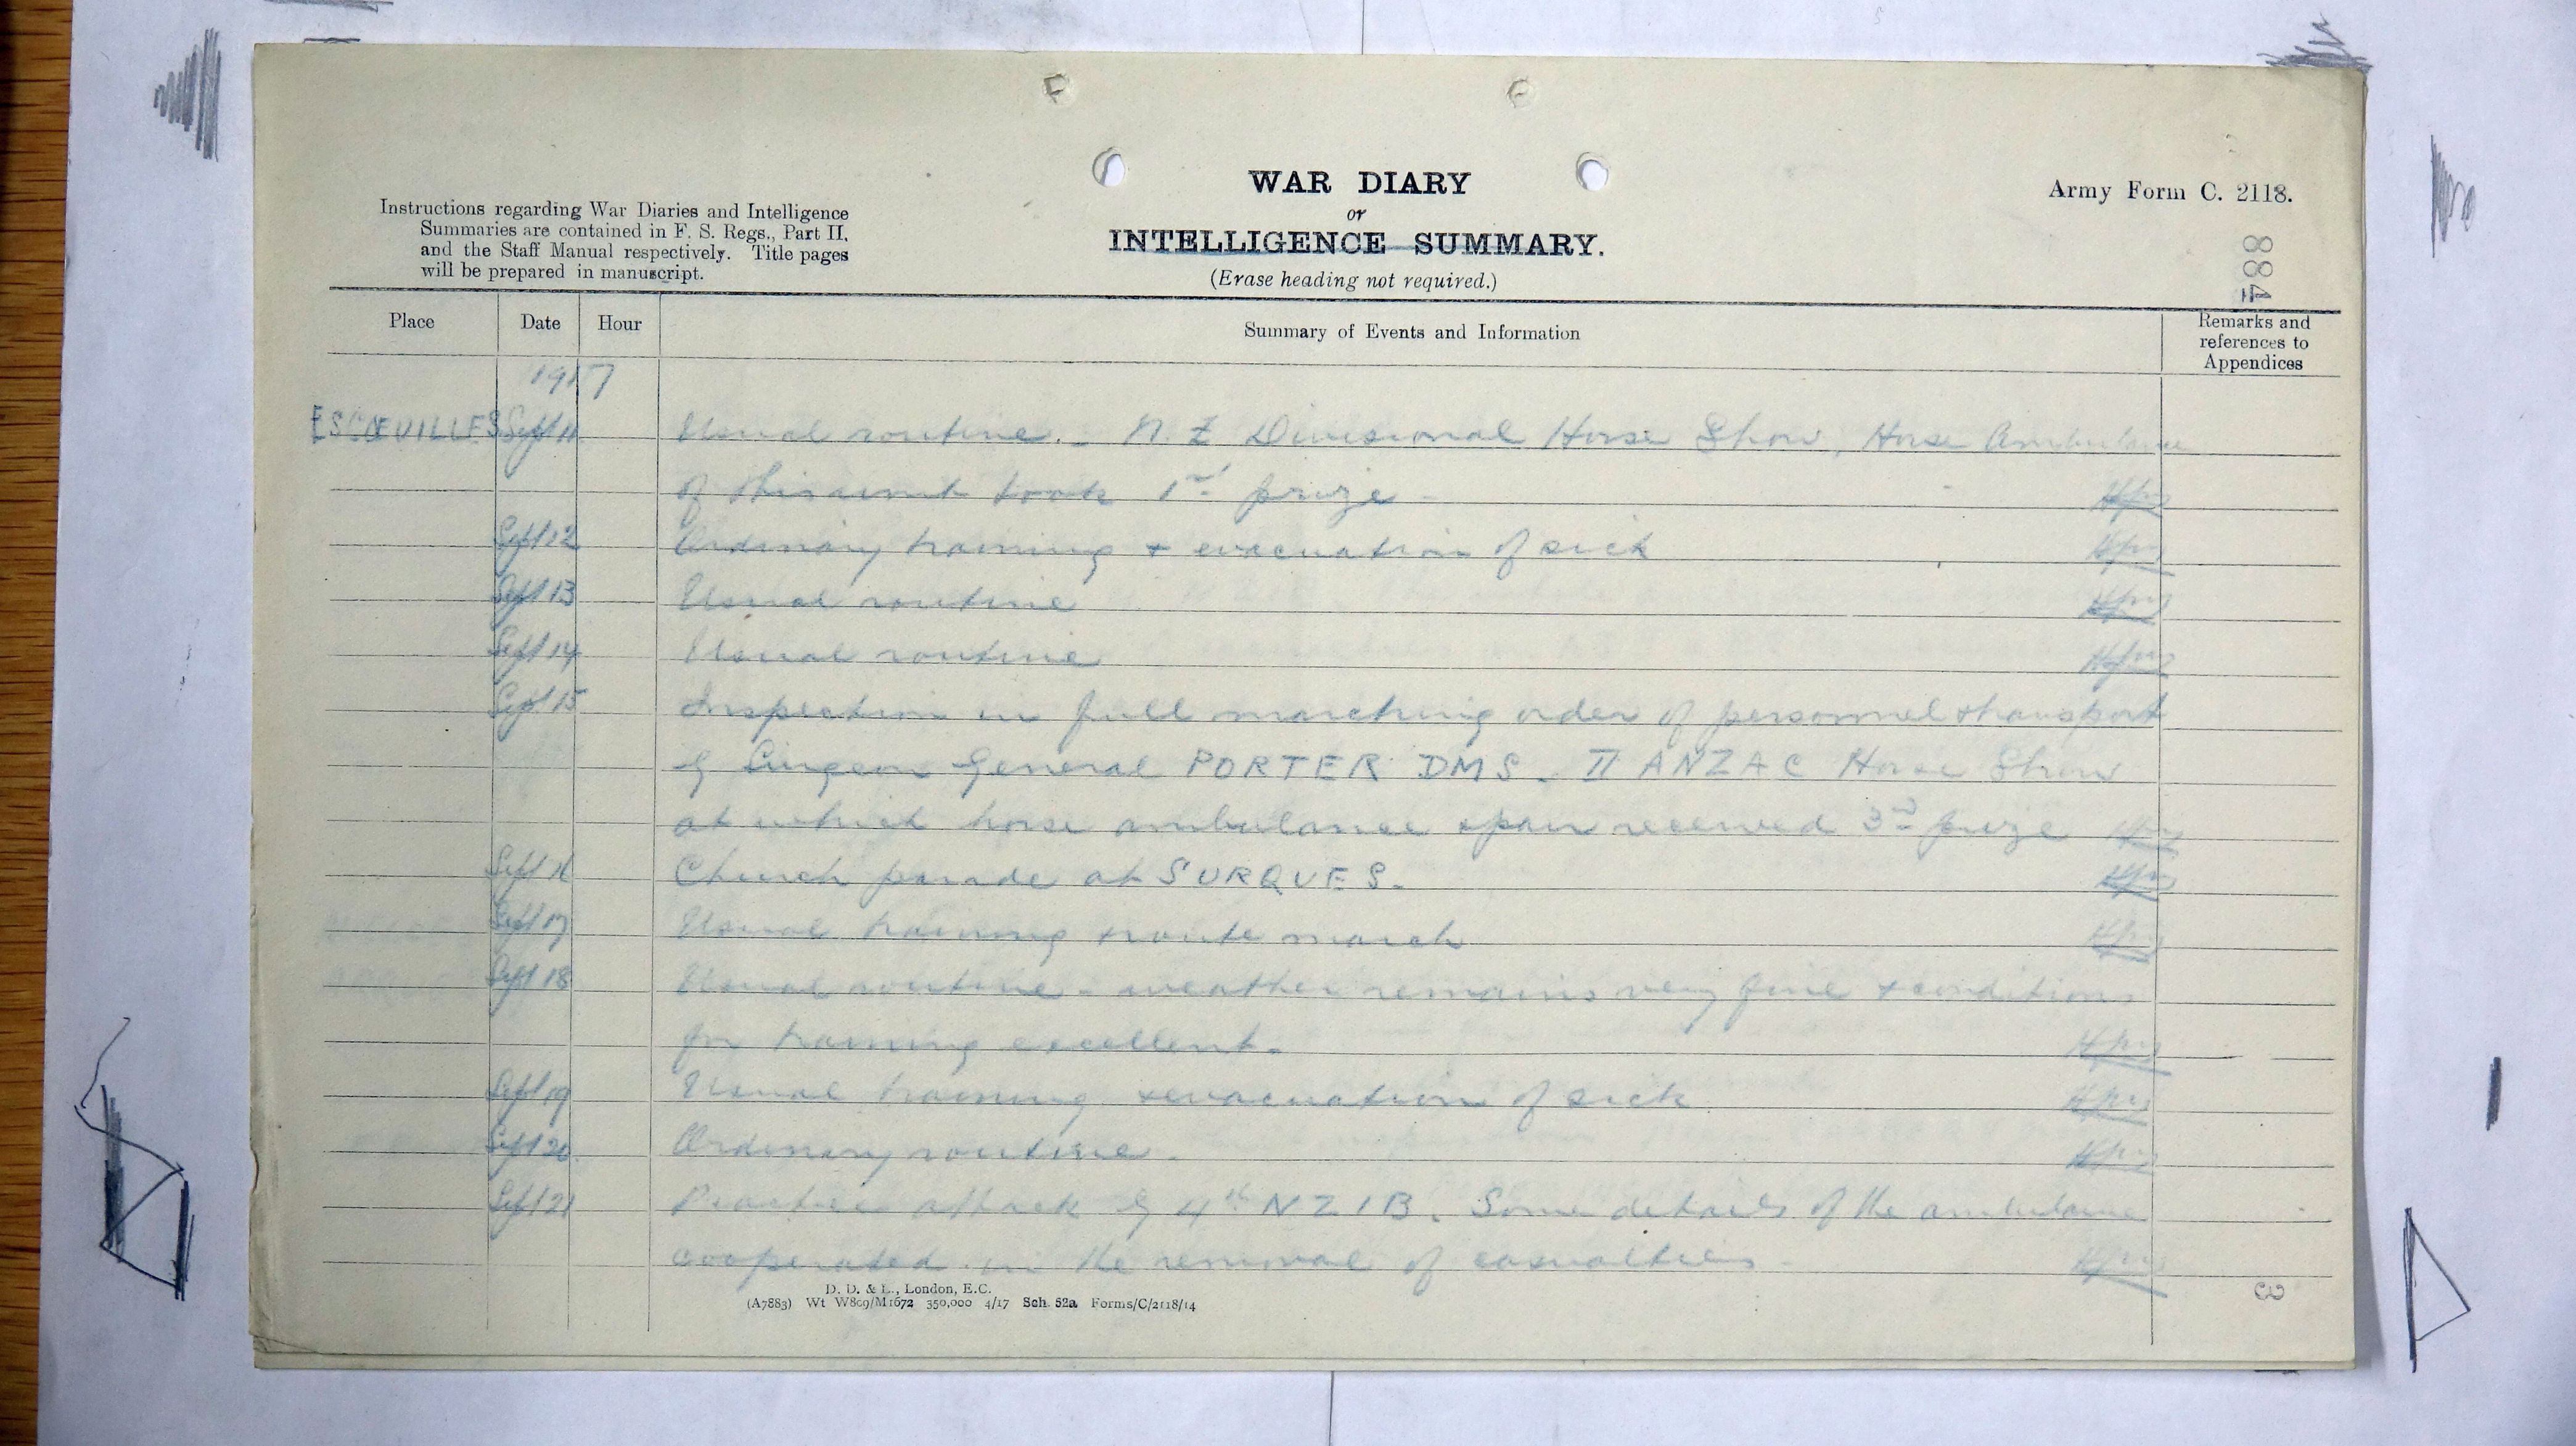 WAR DIARY
or
INTELLIGENCE SUMMARY.
(Erase heading not required.)
Instructions regarding War Diaries and Intelligence
Summaries are contained in F. S. Regs., Part II.
and the Staff Manual respectively. Title pages
will be prepared in manuscript.
Army Form C. 2118.
884
Place Date Hour Summary of Events and Information Remarks and references to Appendices
1917
ESCŒUILLES Sept 11 Usual routine. - N.Z Divisional Horse Show, Horse Ambulance
of this unit took 1st prize -
Sept 12 Ordinary training + evacuation of sick
Sept 13 Usual routine
Sept 14 Usual routine
Sept 15 Inspection in full marching order of personnel + transport
by Surgeon General PORTER DMS. II ANZAC Horse Show
at which horse ambulance + pair received 3rd prize
Sept 16 Church parade at SURQUES.
Sept 17 Usual training + route march
Sept 18 Usual routine - weather remains very fine + conditions
for training excellent.
Sept 19 Usual training + evacuation of sick
Sept 20 Ordinary routine.
Sept 21 Practice attack by 4th NZIB. Some details of the ambulance
cooperated in the removal of casualties.
D. D. & L., London, E.C.
(A7883) Wt W809/M1672 350,000 4/17 Sch. 52a Forms/C/2118/14
3